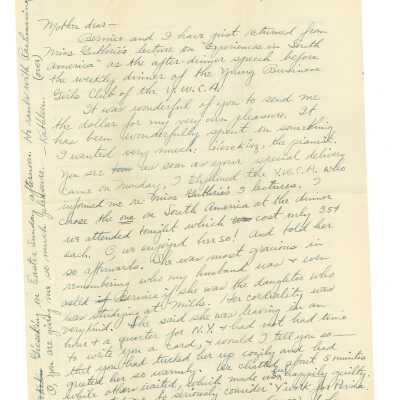 Mother dear—
Bernice and I have just returned from
Miss Guthrie's lecture on "Experiences in South
America" as the after dinner speech before
the weekly dinner of the Young Business
Girls Club of the Y.W.C.A.
It was wonderful of you to send me
the dollar for my very own pleasure. It
has been wonderfully spent in something
I wanted very much: Gieseking, the pianist.
You see as soon as your special delivery
came on Monday, I phoned the Y.W.C.A. who
informed me re Miss Guthrie's 3 lectures. I
chose the one on South America at the dinner
we attended tonight which cost only 35¢
each. O, we enjoyed her so! And told her
so afterwards. She was most gracious in
remembering who my husband was & even
asked if Bernice was the daughter who
was studying at Mills. Her cordiality was
very kind. She said she was leaving in an
hour & a quarter for N.Y. & had not had time
to write you a card, & would I tell you so—
that you had tucked her up cozily and had
greeted her so warmly. We chatted about 5 minutes
while others waited, which made us happily guilty.
seriously consider
Gieseking on Easter Sunday afternoon. He ranks with
O, you are giving me so much pleasure. —Kathleen. (over)